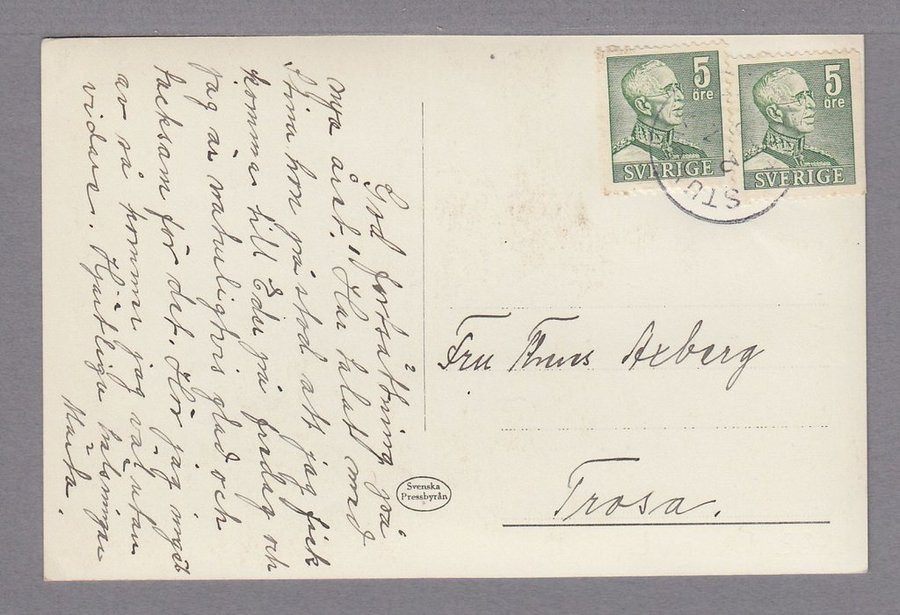 God fortsättning på
nya året! Har talat med
Stina hon påstod att jag fick
komma till Eder på fredag och
jag är naturligtvis glad och
tacksam för det. Hör jag inget
av så kommer jag väl utan
vidare. Hjärtliga hälsningar
Märta.
5
öre
SVERIGE
5
öre
SVERIGE
STU
Fru Axberg
Trosa.
Svenska
Pressbyrån